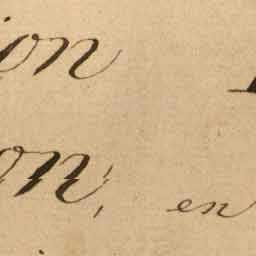 ion
on, en